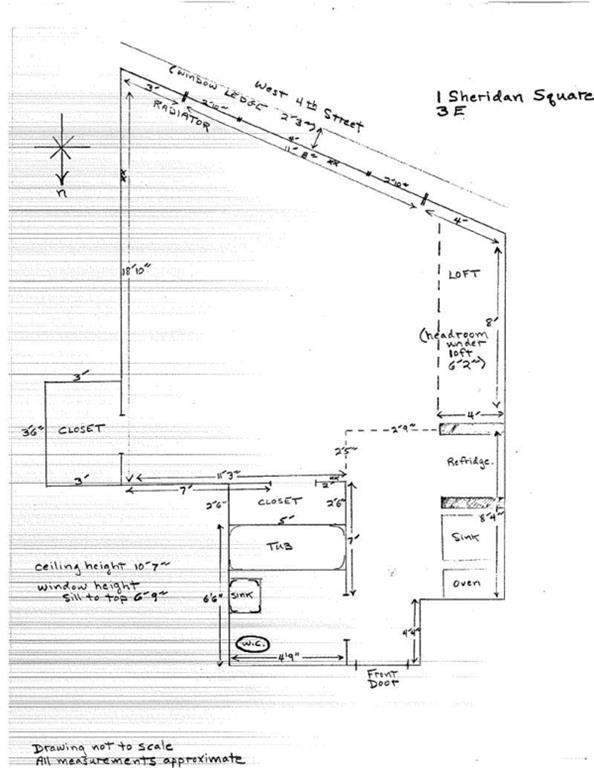 1 Sheridan Square
3E
West 4th Street
(WINDOW LEDGE 2'3")
3'
RADIATOR
2'10"
4'
11'8"
2'10"
4'
n
18'10"
LOFT
8'
(headroom
under
loft
6'2")
4'
3'
3'6"
CLOSET
3'
2'9"
2'5"
Refridge.
11'3"
7'
2"
2'6"
CLOSET
2'6"
5'
7'
8'4"
TUB
Sink
Oven
ceiling height 10'7"
window height
sill to top 6'9"
6'6"
SINK
W.C.
4'9"
4'4"
Front
Door
Drawing not to scale
All measurements approximate